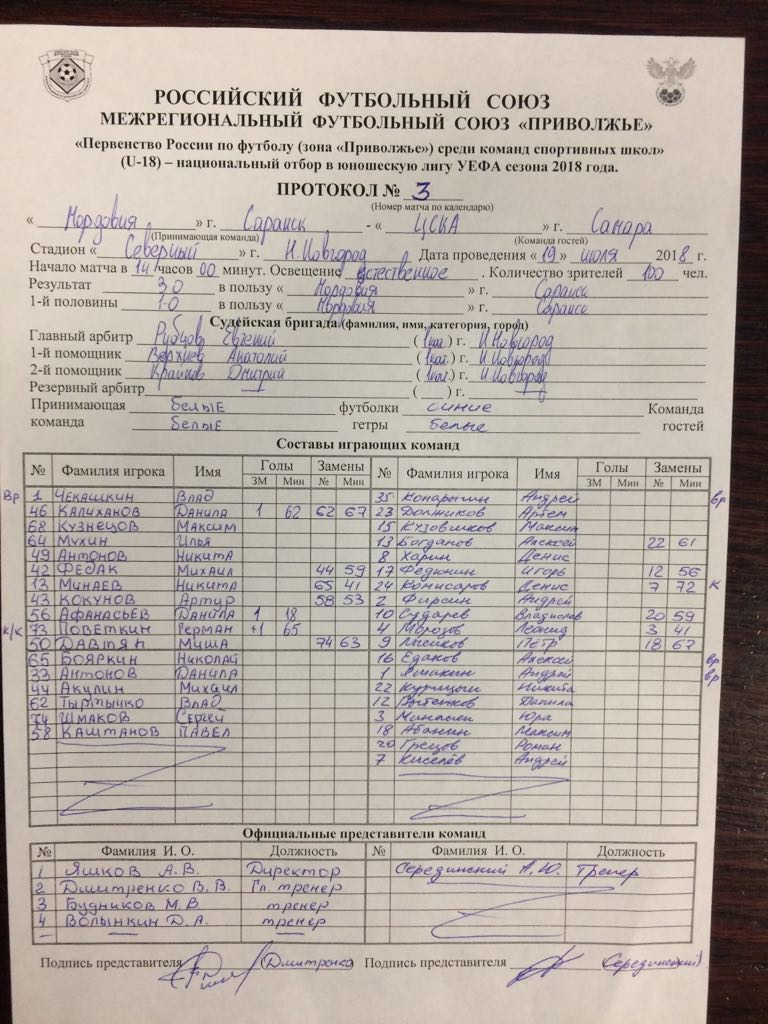 РОССИЙСКИЙ ФУТБОЛЬНЫЙ СОЮЗ
МЕЖРЕГИОНАЛЬНЫЙ ФУТБОЛЬНЫЙ СОЮЗ «ПРИВОЛЖЬЕ»
«Первенство России по футболу (зона «Приволжье») среди команд спортивных школ»
(U-18) – национальный отбор в юношескую лигу УЕФА сезона 2018 года.
ПРОТОКОЛ № 3
(Номер матча по календарю)
« Мордовия » г. Саранск - « ЦСКА » г. Самара
(Принимающая команда) (Команда гостей)
Стадион « Северный » г. Н.Новгород Дата проведения « 19 » июля 2018 г.
Начало матча в 14 часов 00 минут. Освещение естественное . Количество зрителей 100 чел.
Результат 3:0 в пользу « Мордовия » г. Саранск
1-й половины 1-0 в пользу « Мордовия » г. Саранск
Судейская бригада (фамилия, имя, категория, город)
Главный арбитр Рубцов Евгений ( 1кат ) г. Н.Новгород
1-й помощник Анатолий ( 1кат. ) г. Н.Новгород
2-й помощник Крайнов Дмитрий ( 1кат. ) г. Н.Новгород
Резервный арбитр — ( ) г.
Принимающая белые футболки синие Команда
команда белые гетры белые гостей
Составы играющих команд
№ Фамилия игрока Имя Голы Замены № Фамилия игрока Имя Голы Замены
ЗМ Мин № Мин ЗМ Мин № Мин
Вр 1 Чекашкин Влад 35 Андрей вр
46 Калиханов Данила 1 62 62 67 23 Должиков Артем
68 Кузнецов Максим 15 Кузовшков Максим
64 Мухин Илья 13 Богданов Алексей 22 61
49 Антонов Никита 8 Харин Денис
42 Федак Михаил 44 59 17 Федюнин Игорь 12 56
13 Минаев Никита 65 41 24 Комисаров Денис 7 72 К
43 Кокунов Артур 58 53 2 Фирсин Андрей
56 Афанасьев Данила 1 18 10 Сударев Владислав 20 59
к/к 73 Поветкин Герман +1 65 4 Морозов Леонид 3 41
50 Давтян Миша 74 63 9 Лысиков Петр 18 67
65 Бояркин Николай 16 Еданов Алексей вр
33 Антонов Данила 1 Андрей вр
44 Акулин Михаил 22 Никита
62 Тыртычко Влад 12 Данила
74 Шмаков Сергей 3 Юра
58 Каштанов Павел 18 Абанин Максим
20 Грецов Роман
7 Киселёв Андрей
Официальные представители команд
№ Фамилия И. О. Должность № Фамилия И. О. Должность
1 Яшков А.В. Директор Серединский А.Ю. Тренер
2 Дмитренко В.В. Гл. тренер
3 Будников М.В. тренер
4 Волынкин Д.А. тренер
Подпись представителя (Дмитренко) Подпись представителя (Серединский)